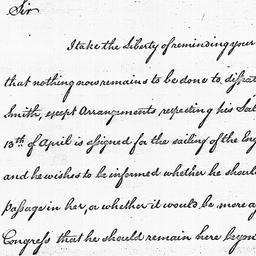 Sir
I take the Liberty of reminding your
that nothing now remains to be done to
Smith, except Arrangements respecting his
13th of April is assigned for the sailing of the
and he wishes to be informed whether he
Passage in her, or whether it would be more
Congress that he should remain here